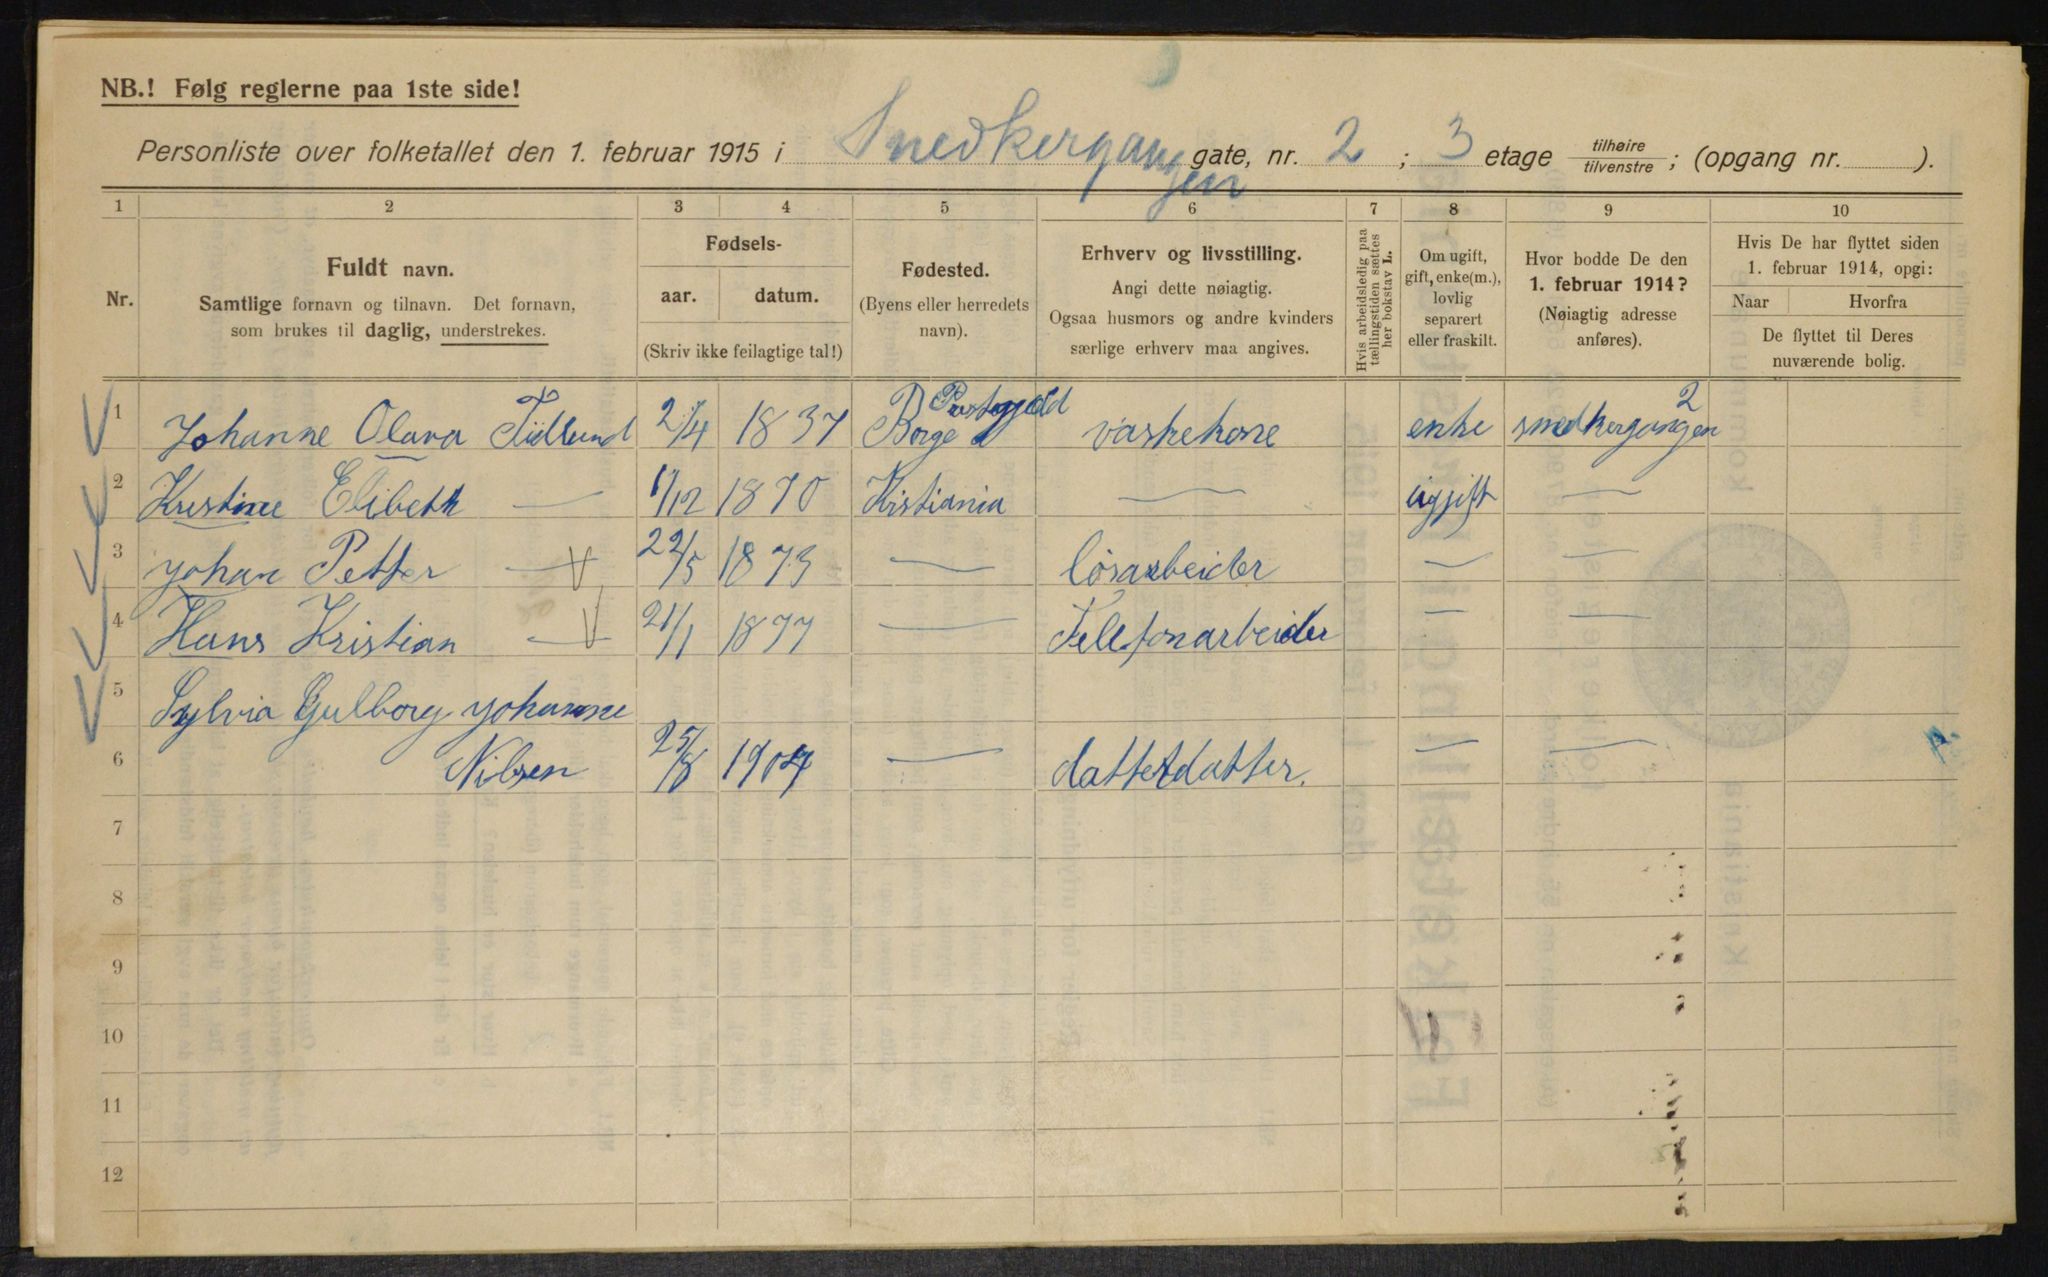 NB.! Følg reglerne paa 1ste side!
Personliste over folketallet den 1. februar 1915 i Snedkergangen gate, nr. 2 ; 3 etage tilhøire tilvenstre ; (opgang nr. ).
1 2 3 4 5 6 7 8 9 10
Nr.
Fuldt navn.
Samtlige fornavn og tilnavn. Det fornavn,
som brukes til daglig, understrekes.
Fødsels-
aar. datum.
(Skriv ikke feilagtige tal!)
Fødested.
(Byens eller herredets
navn).
Erhverv og livsstilling.
Angi dette nøiagtig.
Ogsaa husmors og andre kvinders
særlige erhverv maa angives.
Hvis arbeidsledig paa
tællingstiden sættes
her bokstav L.
Om ugift,
gift, enke(m.),
lovlig
separert
eller fraskilt.
Hvor bodde De den
1. februar 1914?
(Nøiagtig adresse
anføres).
Hvis De har flyttet siden
1. februar 1914, opgi:
Naar Hvorfra
De flyttet til Deres
nuværende bolig.
1 Johanne Olava 2/4 1837 Borge Prestegjæld vaskekone enke snedkergangen 2
2 Kristine Elibeth — 1/12 1870 Kristiania — ugjift —
3 Johan Petter — 22/5 1873 — løsarbeider — —
4 Hans Kristian — 21/1 1877 — Telefonarbeider — —
5 Sylvia Gulborg Johanne
6 Nilsen 25/8 1904 — datterdatter. — —
7
8
9
10
11
12